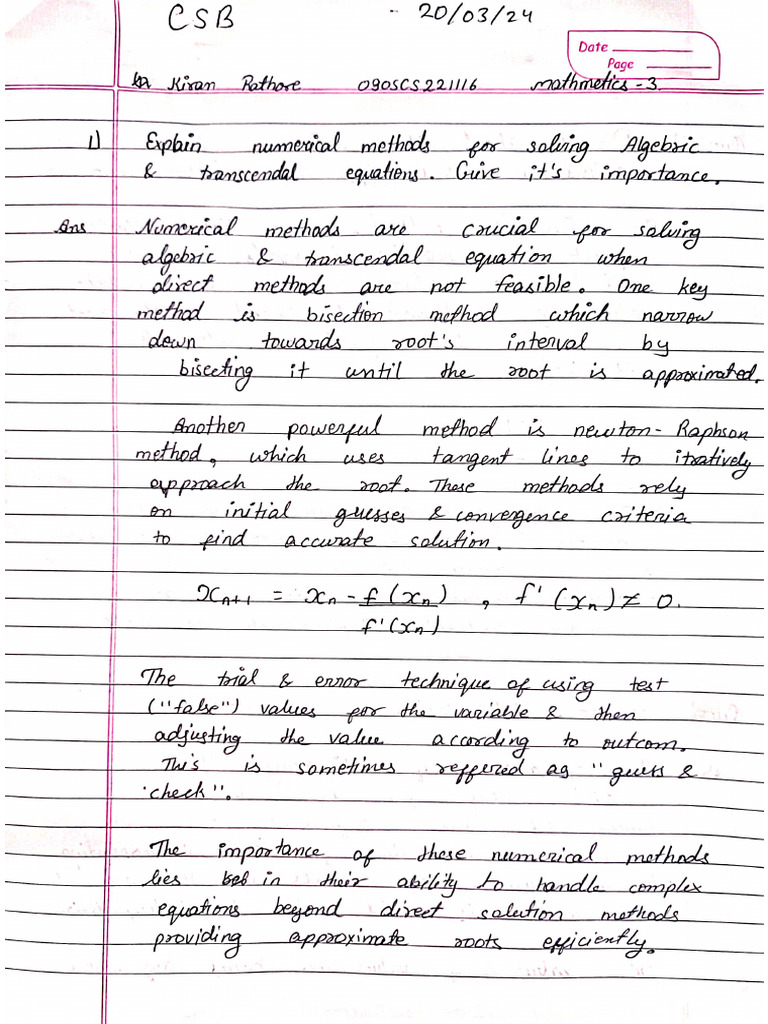 CSB - 20/03/24
Date
Page
Kiran Rathore 0905CS221116 Mathmetics-3.
1) Explain numerical methods for solving Algebric
& transcendal equations. Give it's importance.
Ans Numerical methods are crucial for solving
algebric & transcendal equation when
direct methods are not feasible. One key
method is bisection method which narrow
down towards root's interval by
bisecting it until the root is approximated.
Another powerful method is newton-Raphson
method, which uses tangent lines to itratively
approach the root. These methods rely
on initial guesses & convergence criteria
to find accurate solution.
xₙ₊₁ = xₙ - f(xₙ) , f'(xₙ) ≠ 0.
f'(xₙ)
The trial & error technique of using test
("false") values for the variable & then
adjusting the value according to outcom.
This is sometimes reffered as "guess &
check".
The importance of these numerical methods
lies in their ability to handle complex
equations beyond direct solution methods
providing approximate roots efficiently.